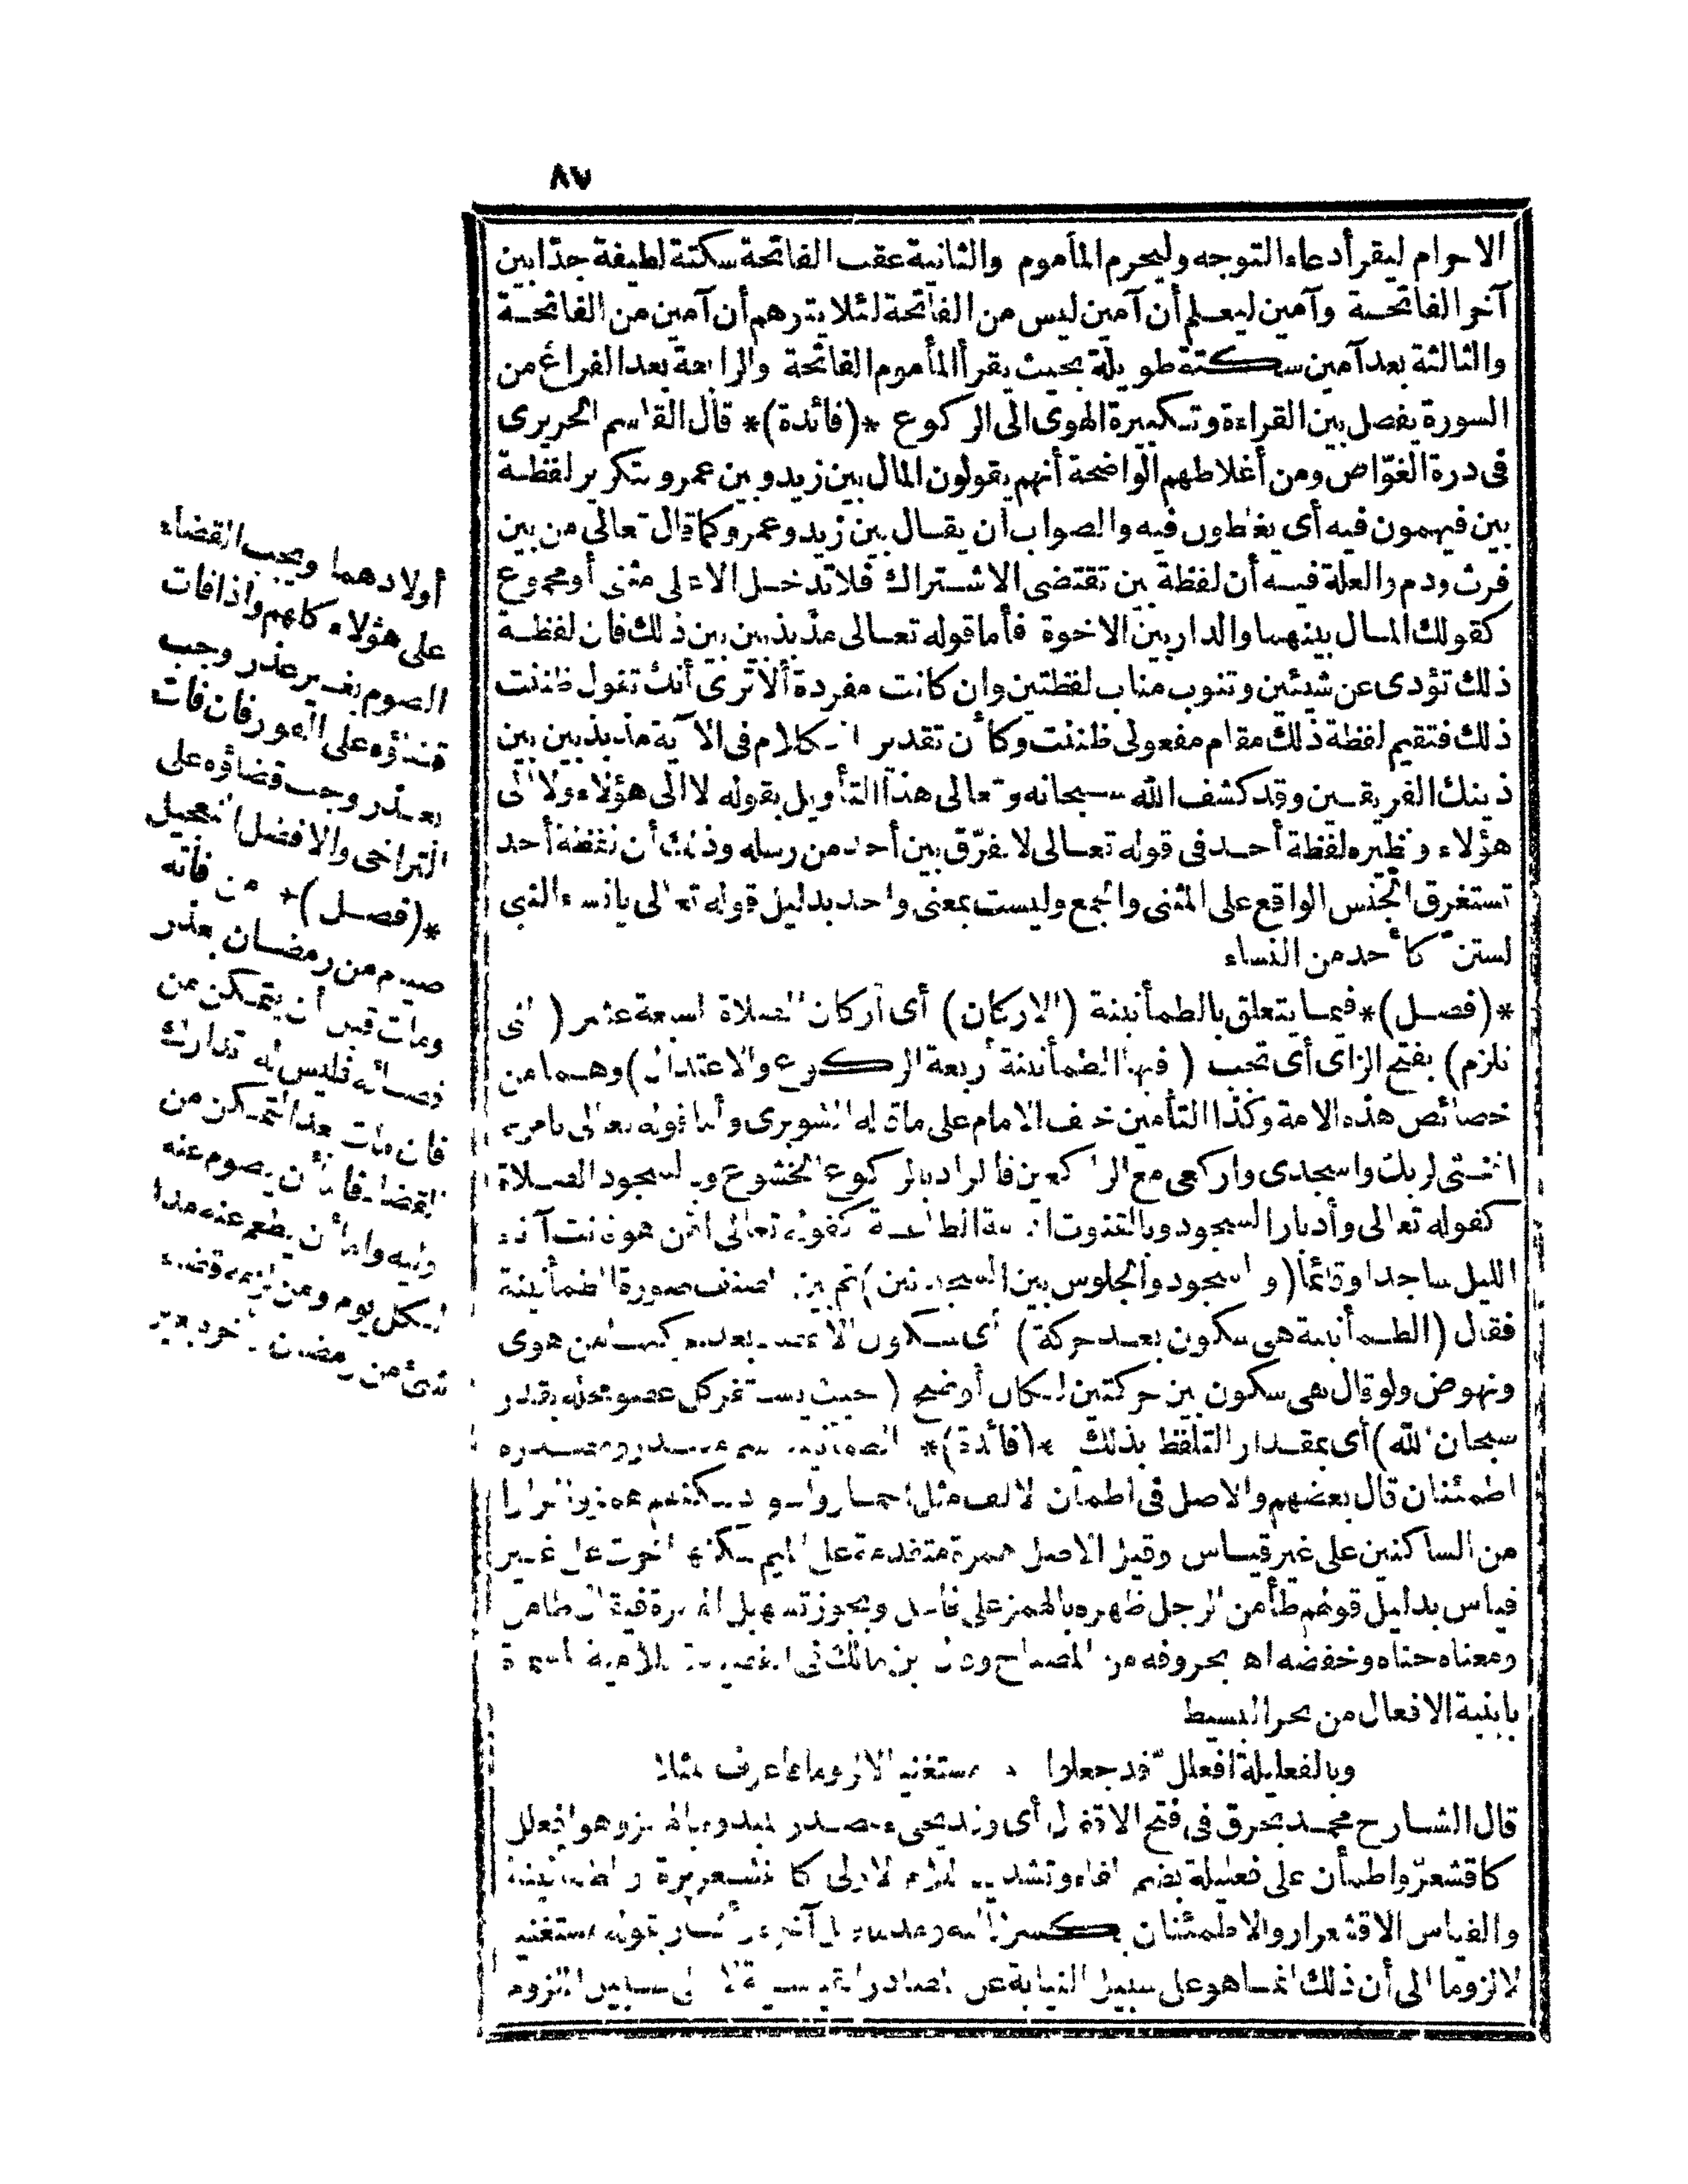 ٨٧
الاحرام ليقرأ دعاء التوجه وليحرم المأموم والثانية عقب الفاتحة سكتة لطيفة جدّا بين
آخر الفاتحة وآمين ليعلم أن آمين ليس من الفاتحة لئلا يتوهم أن آمين من الفاتحة
والثالثة بعد آمين سكتة طويلة بحيث يقرأ المأموم الفاتحة والرابعة بعد الفراغ من
السورة يفصل بين القراءة وتكبيرة الهوى الى الركوع *(فائدة)* قال القاسم الحريرى
فى درة الغوّاص ومن أغلاطهم الواضحة أنهم يقولون المال بين زيد وبين عمرو بتكرير لفظة
بين فيهمون فيه أى يغلطون فيه والصواب أن يقال بين زيد وعمرو كما قال تعالى من بين
فرث ودم والعلة فيه أن لفظة بين تقتضى الاشتراك فلا تدخل الا على مثنى أو مجموع
كقولك المال بينهما والدار بين الاخوة فأما قوله تعالى مذبذبين بين ذلك فان لفظة
ذلك تؤدى عن شيئين وتنوب مناب لفظتين وان كانت مفردة ألا ترى أنك تقول ظننت
ذلك فتقيم لفظة ذلك مقام مفعولى ظننت وكأن تقدير الكلام فى الآية مذبذبين بين
ذينك الفريقين وقد كشف الله سبحانه وتعالى هذا التأويل بقوله لا الى هؤلاء ولا الى
هؤلاء ونظيره لفظة أحد فى قوله تعالى لا نفرّق بين أحد من رسله وذلك أن لفظة أحد
تستغرق الجنس الواقع على المثنى والجمع وليست بمعنى واحد بدليل قوله تعالى يا نساء النبى
لستنّ كأحد من النساء
*(فصل)* فيما يتعلق بالطمأنينة (الاركان) أى أركان الصلاة السبعة عشر (التى
تلزم) بفتح الزاى أى تجب (فيها الطمأنينة أربعة الركوع والاعتدال) وهما من
خصائص هذه الامة وكذا التأمين خلف الامام على ما قاله الشوبرى وأما قوله تعالى يا مريم
اقنتى لربك واسجدى واركعى مع الراكعين فالمراد بالركوع الخشوع وبالسجود الصلاة
كقوله تعالى وأدبار السجود وبالقنوت الطاعة كقوله تعالى أمّن هو قانت آناء
الليل ساجدا وقائما (والسجود والجلوس بين السجدتين) ثم بين المصنف صورة الطمأنينة
فقال (الطمأنينة هى سكون بعد حركة) أى سكون الاعضاء بعد حركتها من هوى
ونهوض ولو قال هى سكون بين حركتين لكان أوضح (حيث يستقر كل عضو محله بقدر
سبحان الله) أى بمقدار التلفظ بذلك *(فائدة)* الطمأنينة اسم مصدر ومصدره
اطمئنان قال بعضهم والاصل فى اطمأن الالف مثل احمارّ واسوادّ لكنهم همزوا فرارا
من الساكنين على غير قياس وقيل الاصل همزة متقدمة على الميم لكنها أخرت على غير
قياس بدليل قولهم طأمن الرجل ظهره بالهمز على فاعل ويجوز تسهيل الهمزة فيقال طامن
ومعناه حناه وخفضه اه بحروفه من المصباح وقال ابن مالك فى القصيدة اللامية المسماة
بابنية الافعال من بحر البسيط
وبالفعليلة افعللّ قد جعلوا * مستغنيا لا لزوما فاعرف المثلا
قال الشارح محمد بحرق فى فتح الاقفال أى وقد يجىء مصدر المبدوء بالهمز وهو افعلل
كاقشعرّ واطمأن على فعليلة بضم الفاء وتشديد اللام الاولى كالقشعريرة والطمأنينة
والقياس الاقشعرار والاطمئنان بكسر ثالثه ومد ما قبل آخره وأشار بقوله مستغنيا
لا لزوما الى أن ذلك انما هو على سبيل النيابة عن المصادر القياسية لا على سبيل اللزوم
أولادهما ويجب القضاء
على هؤلاء كلهم واذا فات
الصوم بغير عذر وجب
قضاؤه على الفور فان فات
بعذر وجب قضاؤه على
التراخى والافضل التعجيل
*(فصل)* من فاته
صيام من رمضان بعذر
ومات قبل أن يتمكن من
قضائه فليس له تدارك
فان مات بعد التمكن من
القضاء فاما أن يصوم عنه
وليه واما أن يطعم عنه مدا
لكل يوم ومن لزمه قضاء
شئ من رمضان وأخره بغير